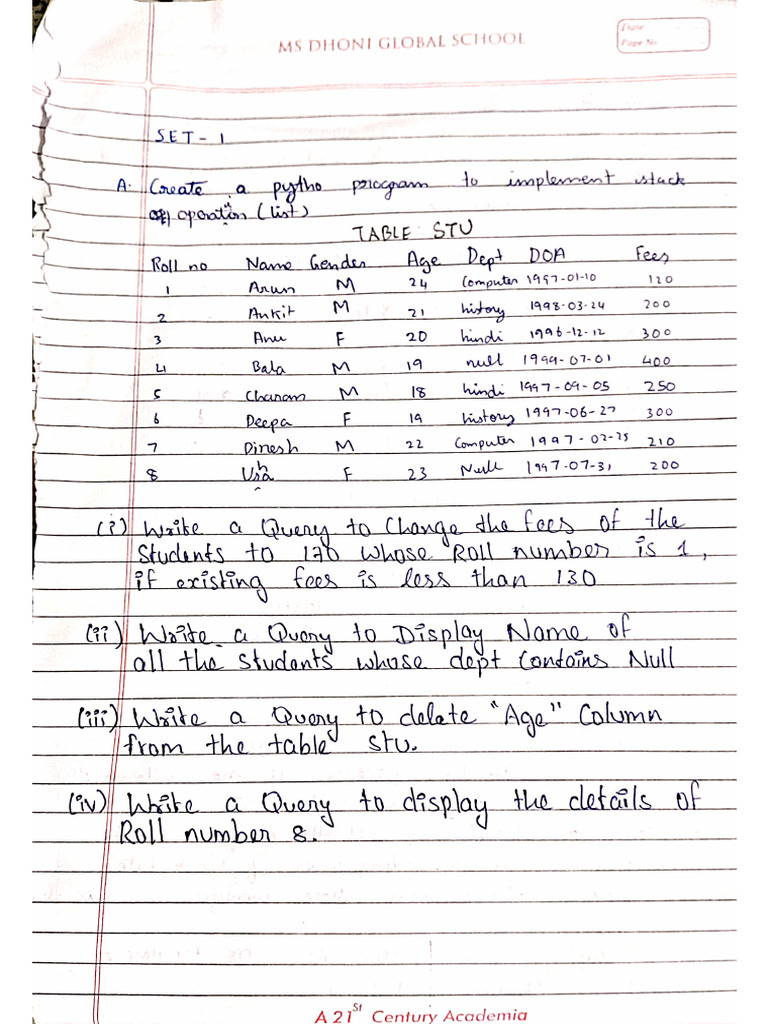 MS DHONI GLOBAL SCHOOL
Date
Page No
SET - 1
A. Create a pytho program to implement stack
operation (list)
TABLE STU
Roll no Name Gender Age Dept DOA Fees
1 Arun M 24 Computer 1997-01-10 120
2 Ankit M 21 history 1998-03-24 200
3 Anu F 20 hindi 1996-12-12 300
4 Bala M 19 null 1999-07-01 400
5 Charam M 18 hindi 1997-09-05 250
6 Deepa F 19 history 1997-06-27 300
7 Dinesh M 22 Computer 1997-02-25 210
8 Usha F 23 Null 1997-07-31 200
(i) Write a Query to Change the fees of the
Students to 170 whose Roll number is 1,
if existing fees is less than 130
(ii) Write a Query to Display Name of
all the Students whose dept Contains Null
(iii) Write a Query to delete "Age" Column
from the table stu.
(iv) Write a Query to display the details of
Roll number 8.
A 21St Century Academia